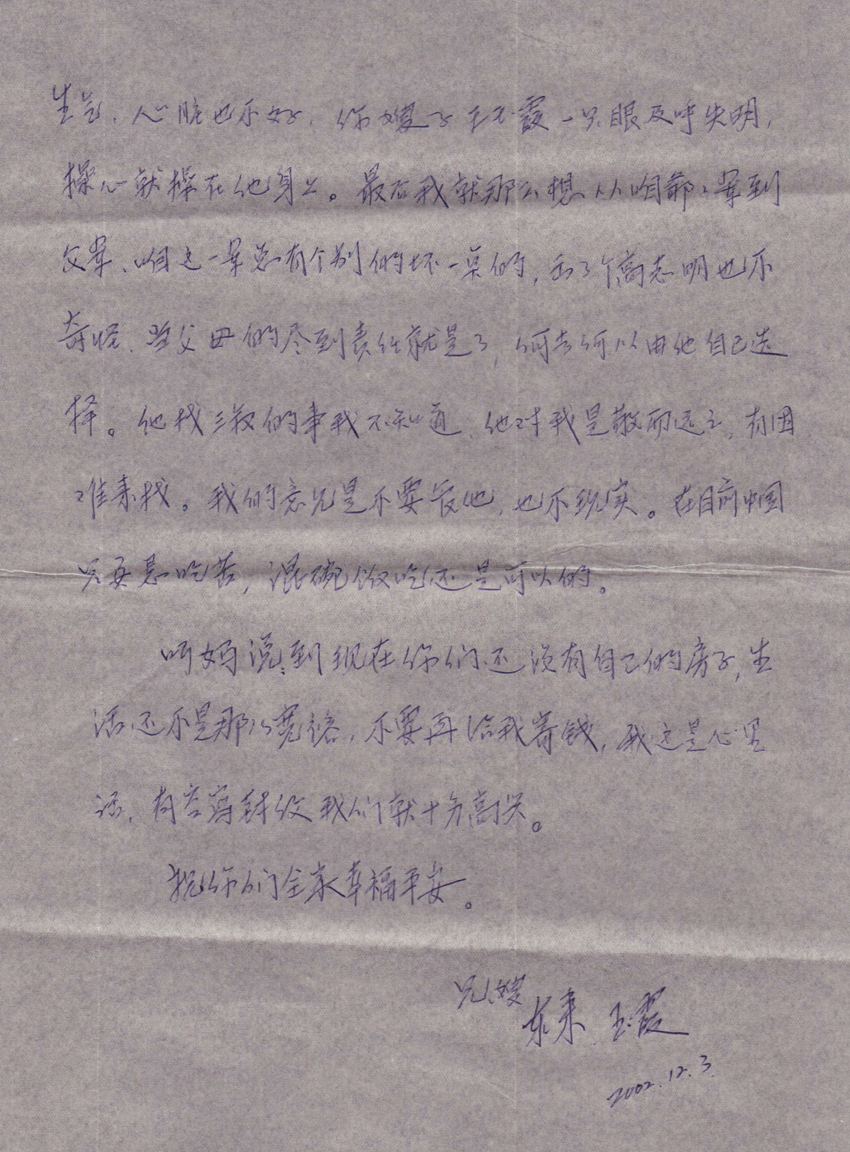 生气，心脏也不好，你嫂子王玉霞一只眼及呼失明，
操心就操在他身上。最后我就那么想从咱爷々辈到
父辈、咱这一辈总有个别的坏一点的，出了个高志明也不
奇怪，当父母的尽到责任就是了，何去何从由他自己选
择。他找三叔的事我不知道，他对我是敬而远之，有困
难来找。我的意见是不要管他，也不现实。在目前中国
只要是吃苦，混碗饭吃还是可以的。
听妈说到现在你们还没有自己的房子，生
活还不是那么宽裕，不要再给我寄钱，我这是心里
话，有空写封信我们就十分高兴。
祝你们全家幸福平安。
兄嫂
东来 玉霞
2002.12.3